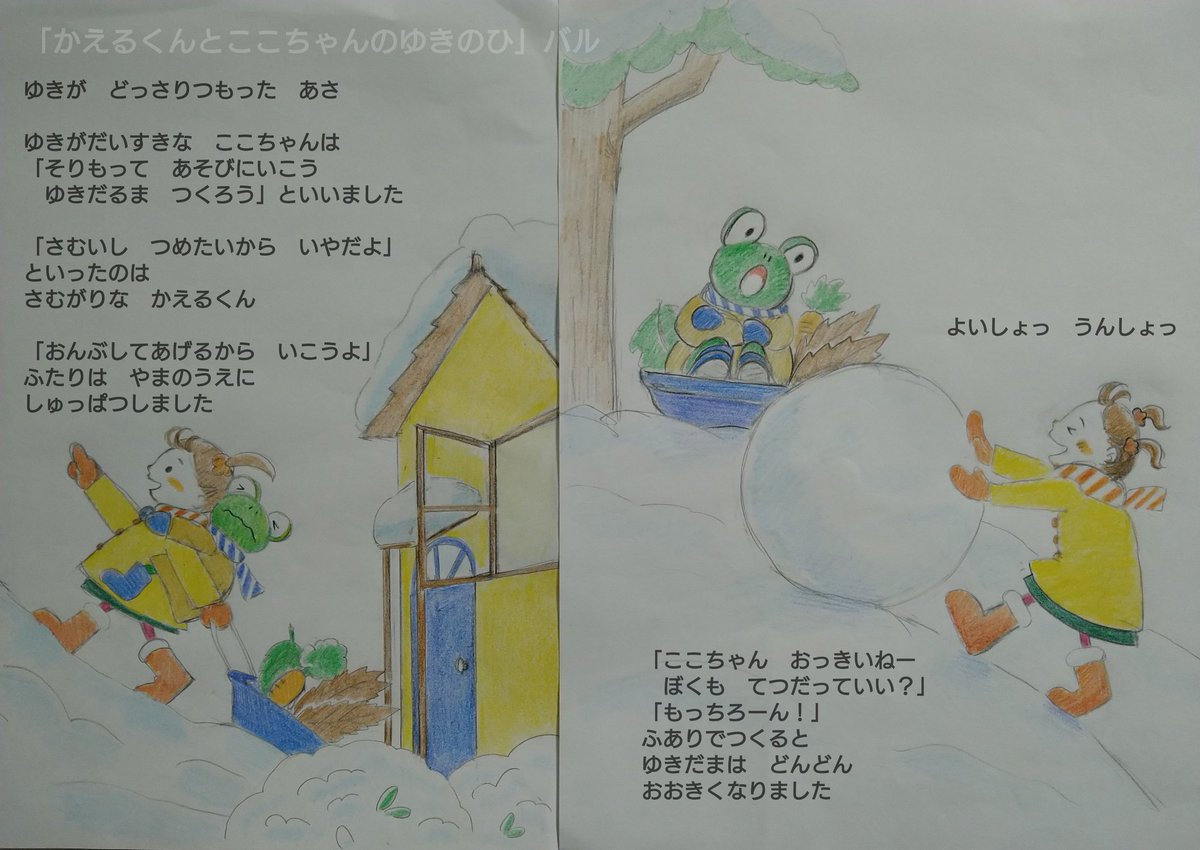 「かえるくんとここちゃんのゆきのひ」バル
ゆきが　どっさりつもった　あさ
ゆきがだいすきな　ここちゃんは
「そりもって　あそびにいこう
ゆきだるま　つくろう」といいました
「さむいし　つめたいから　いやだよ」
といったのは
さむがりな　かえるくん
「おんぶしてあげるから　いこうよ」
ふたりは　やまのうえに
しゅっぱつしました
よいしょっ　うんしょっ
「ここちゃん　おっきいねー
ぼくも　てつだっていい？」
「もっちろーん！」
ふありでつくると
ゆきだまは　どんどん
おおきくなりました